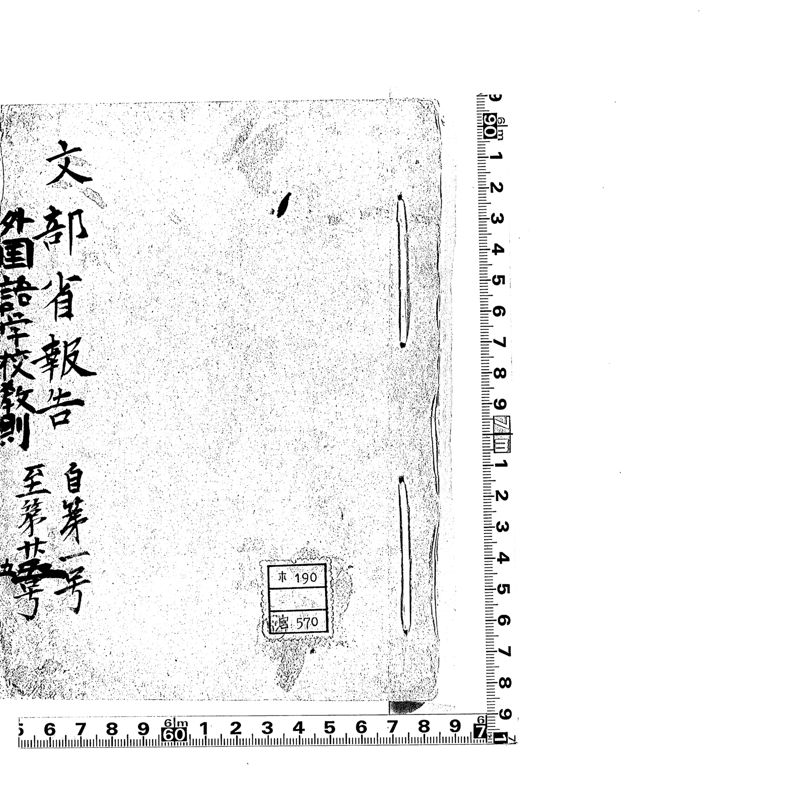 文部省報告
自第一号
外国語学校教則
至第廿五号
九
木 190
570
9 6 1m 90 1 2 3 4 5 6 7 8 9 7 1m 1 2 3 4 5 6 7 8 9 1
5 6 7 8 9 6 1m 60 1 2 3 4 5 6 7 8 9 6 7